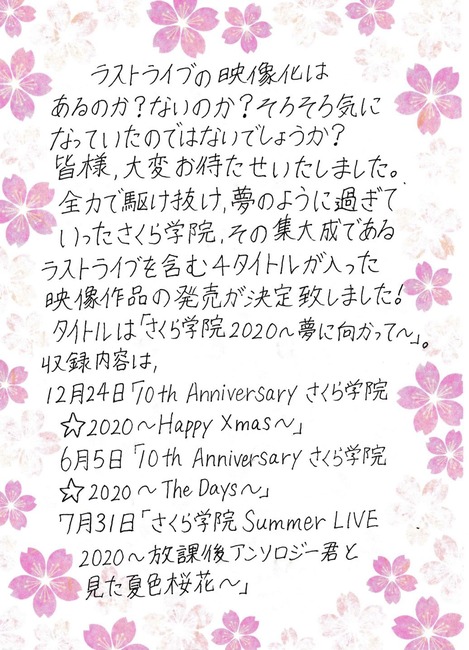 ラストライブの映像化は
あるのか？ないのか？そろそろ気に
なっていたのではないでしょうか？
皆様,大変お待たせいたしました。
全力で駆け抜け,夢のように過ぎて
いったさくら学院,その集大成である
ラストライブを含む4タイトルが入った
映像作品の発売が決定致しました!
タイトルは「さくら学院2020～夢に向かって～」。
収録内容は,
12月24日「10th Anniversary さくら学院
☆2020～Happy Xmas～」
6月5日「10th Anniversary さくら学院
☆2020～The Days～」
7月31日「さくら学院 Summer LIVE
2020～放課後アンソロジー君と
見た夏色桜花～」